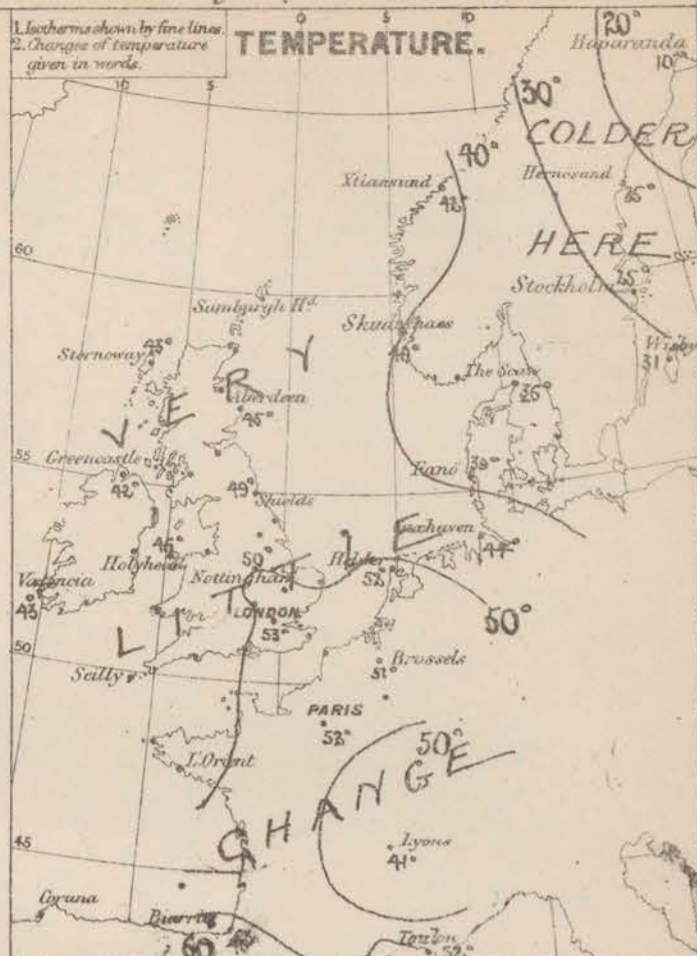 1. Isotherms shown by fine lines.
2. Changes of temperature
given in words.
TEMPERATURE.
10 5 0 5 10
20°
Haparanda
10°
30°
COLDER
40°
Xtiansund
42°
Hernosand
25°
HERE
60
Sumburgh Hd.
Stockholm
25°
Stornoway
43°
Skudesnaes
40°
Wisby
31
The Scaw
36°
VERY
Aberdeen
45°
55
Greencastle
42°
49°
Shields
Fanö
39°
Cuxhaven
44°
Holyhead
46
50
Nottingham
Helder
52°
Valencia
43
LITTLE
LONDON
53°
50°
50
Scilly
Brussels
51°
PARIS
53°
50°
L'Orient
CHANGE
Lyons
41°
45
Coruna
Biarritz
60
Toulon
52°